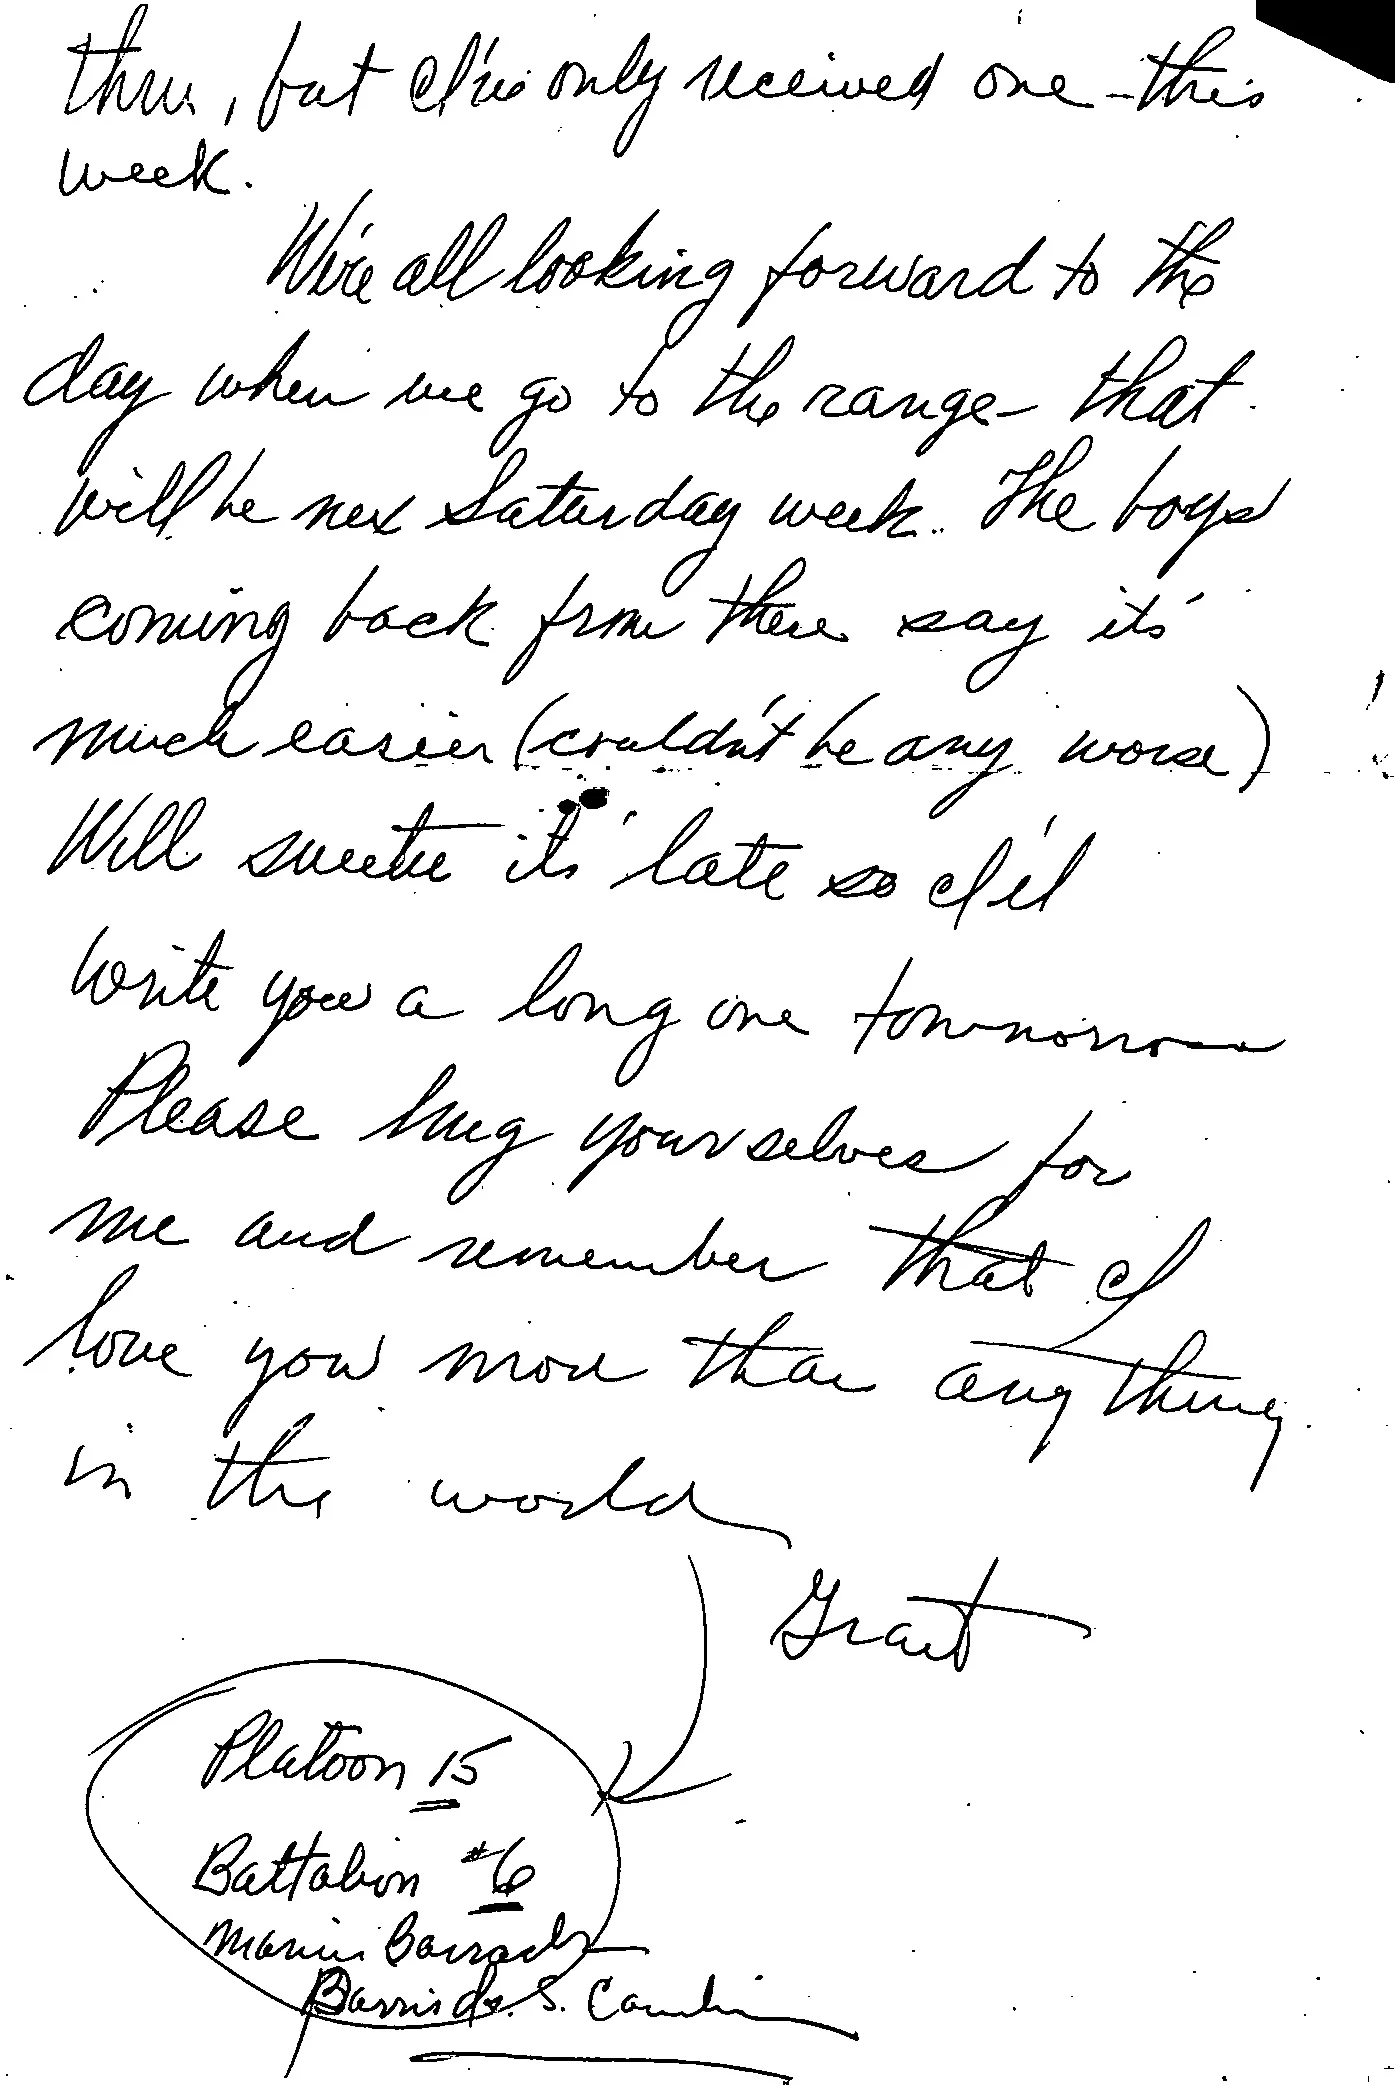 thru, but I've only received one - this
week.
We're all looking forward to the
day when we go to the range - that
will be nex Saturday week. The boys
coming back from there say it's
much easier (couldn't be any worse)
Well sweetie it's late so I'll
write you a long one tommorrow
Please hug yourselves for
me and remember that I
love you more than anything
in the world
Grant
Platoon 15
Battalion #6
Marine Barracks
Parris Is. S. Carolina